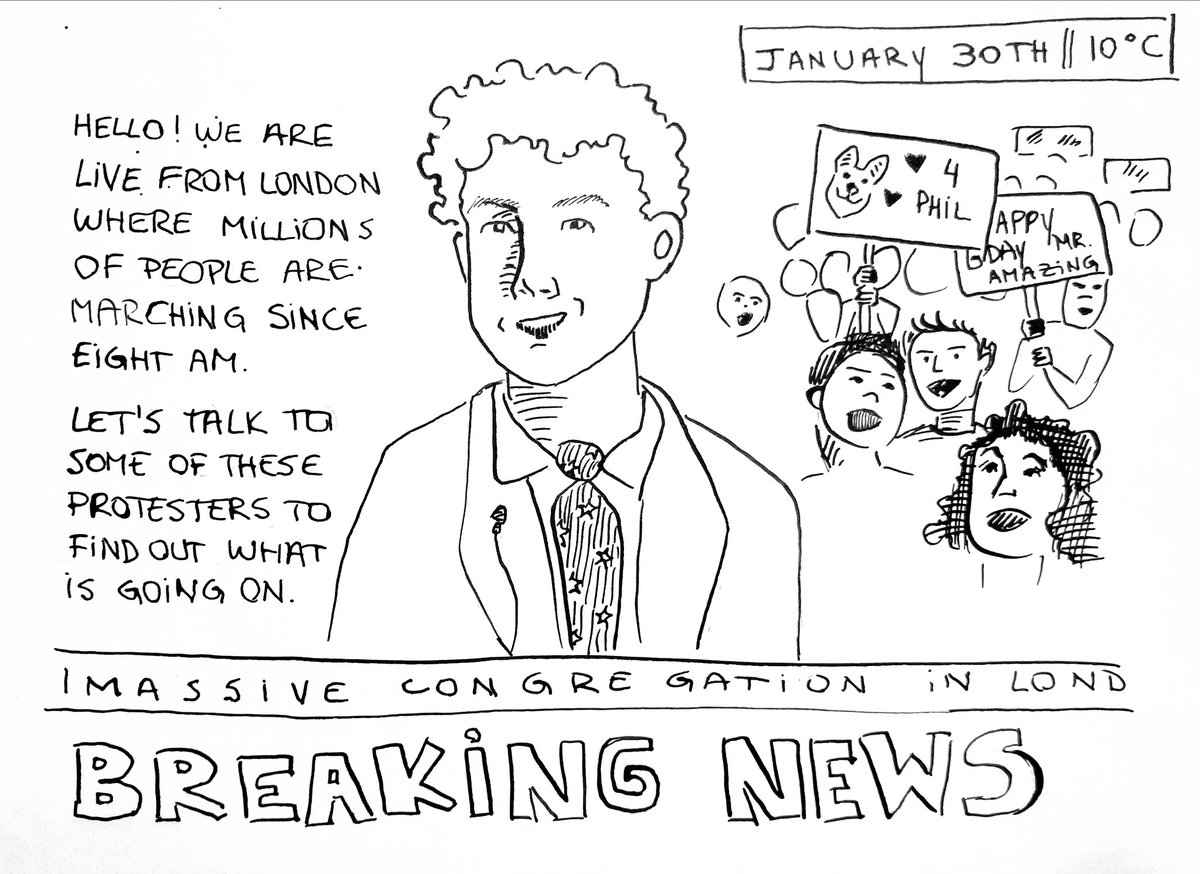 JANUARY 30TH || 10°C
HELLO! WE ARE
LIVE FROM LONDON
WHERE MILLIONS
OF PEOPLE ARE
MARCHING SINCE
EIGHT AM.
LET'S TALK TO
SOME OF THESE
PROTESTERS TO
FIND OUT WHAT
IS GOING ON.
♥ 4
♥ PHIL
APPY
GDAY MR.
AMAZING
MASSIVE CONGREGATION IN LOND
BREAKING NEWS